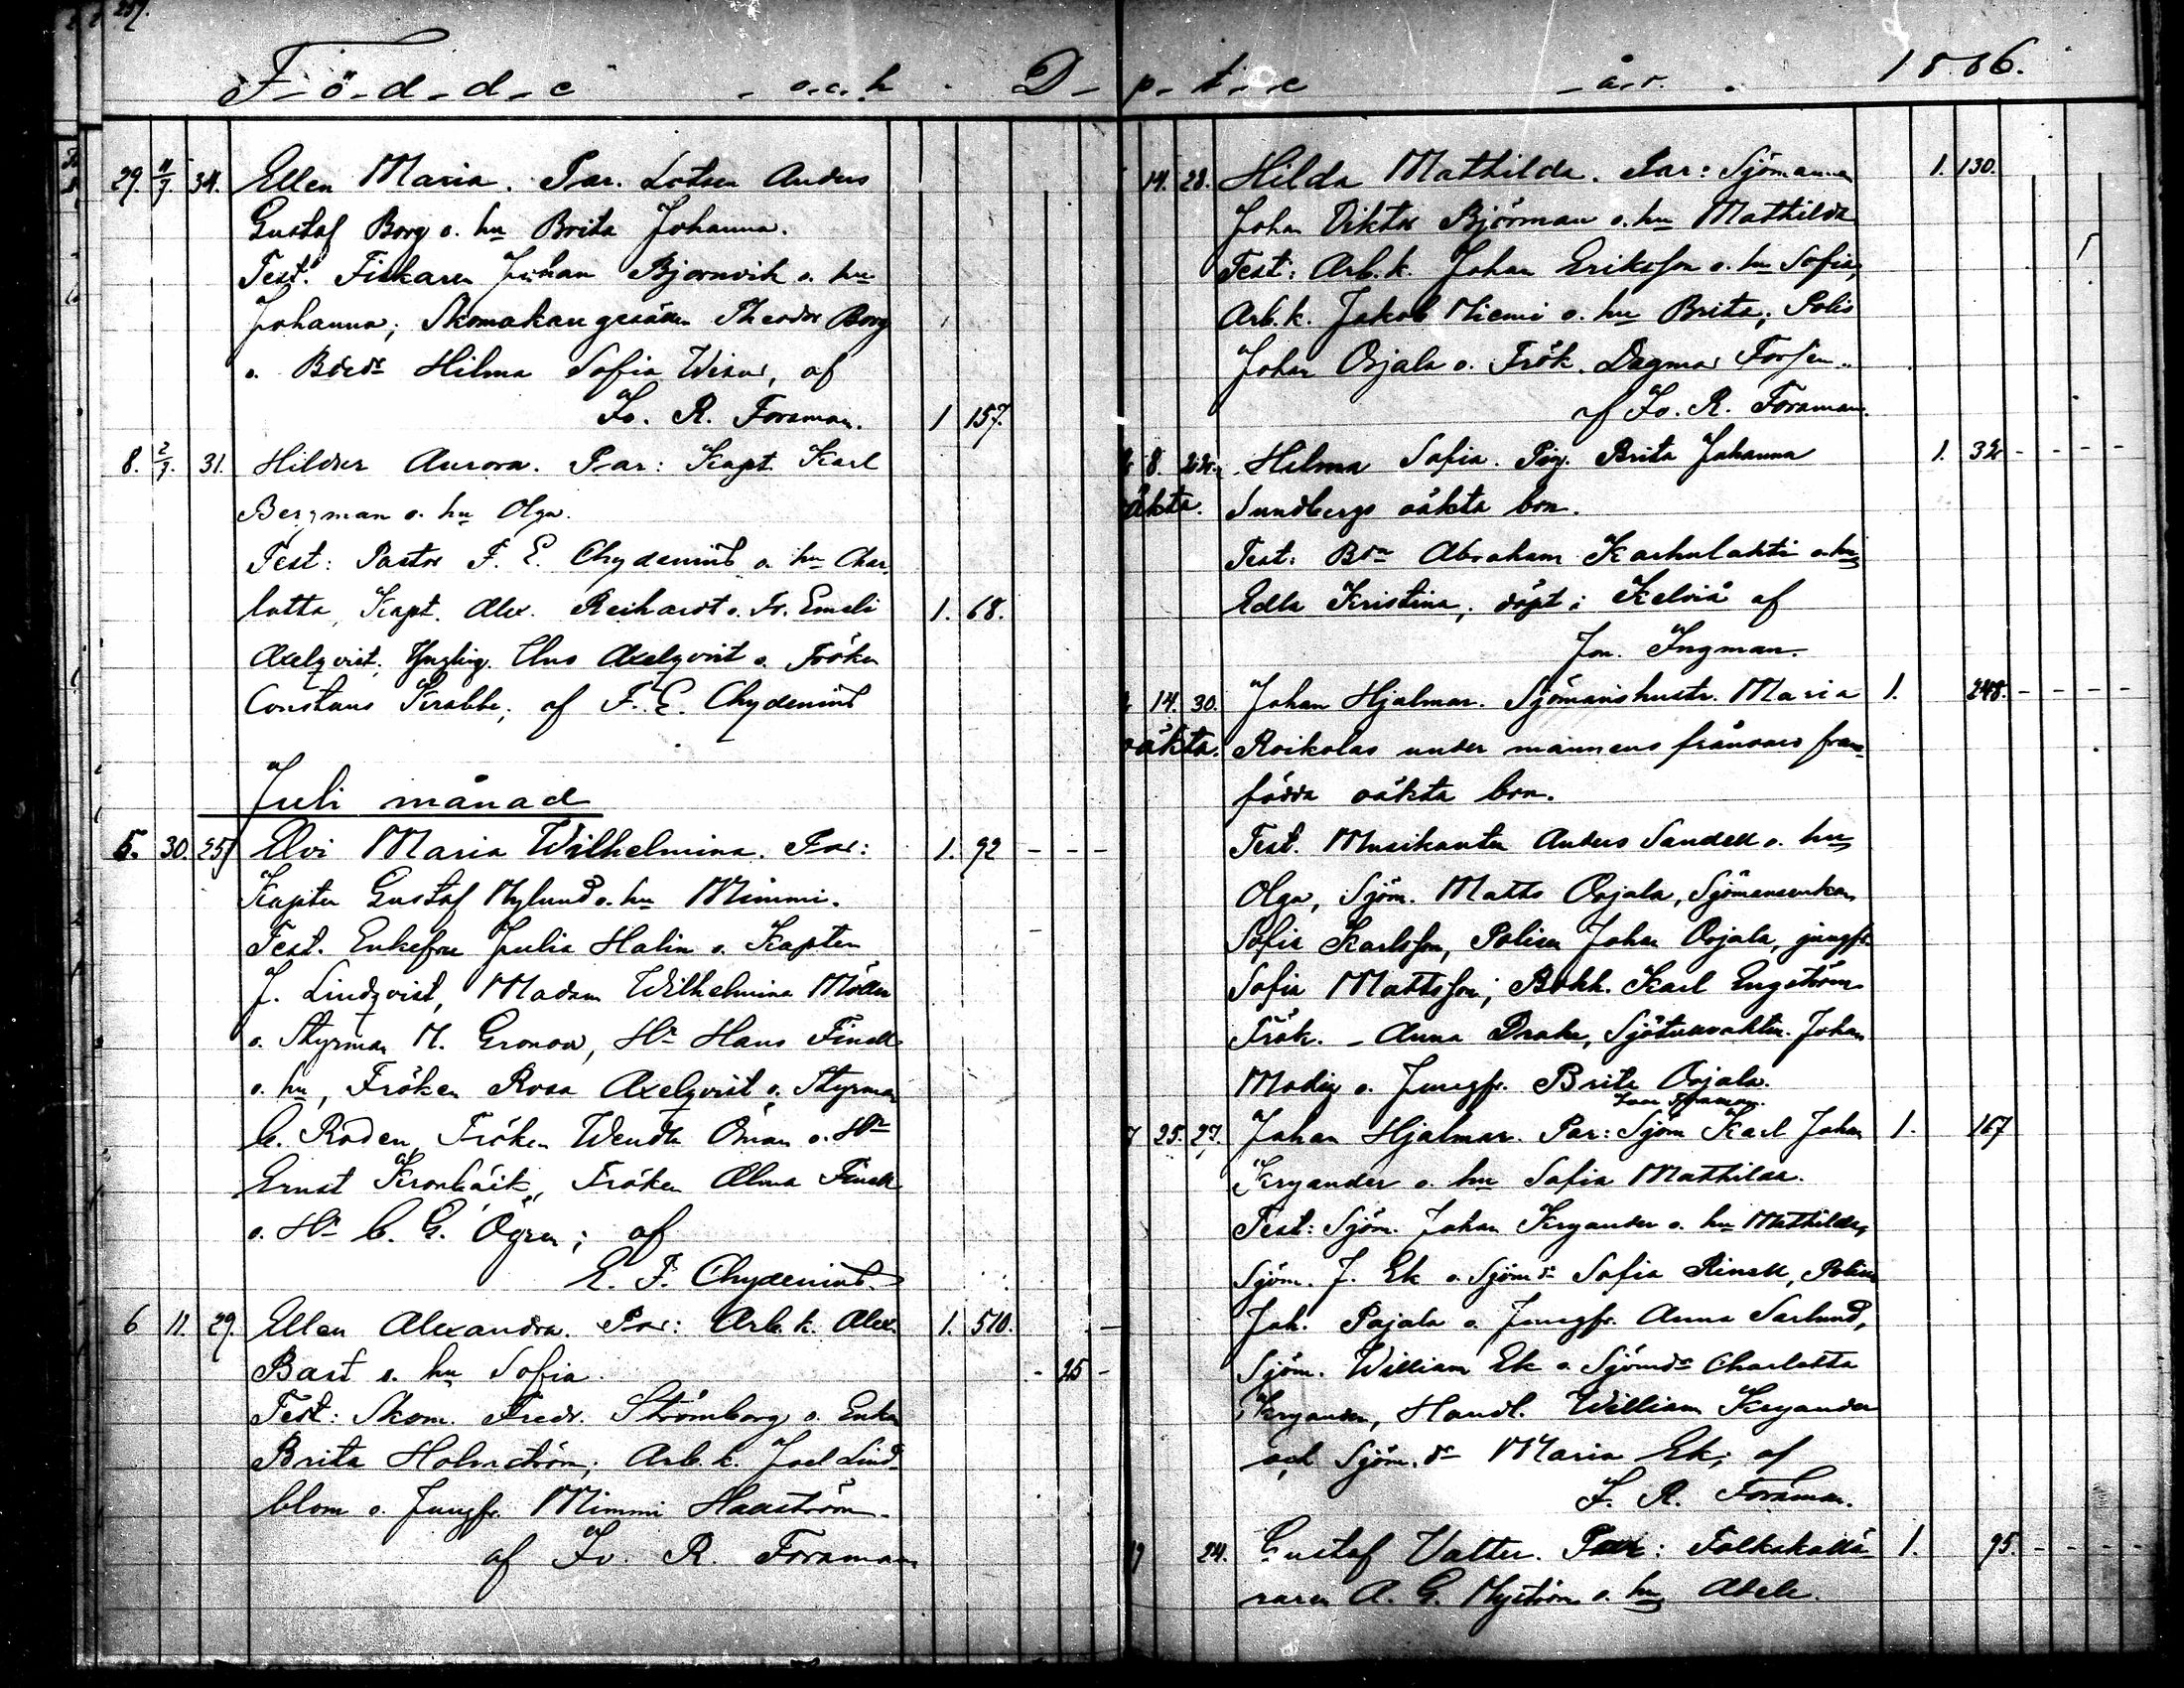 257.
Födde och Döpte år 1886.
29. 11/7. 34. Ellen Maria. Par. Lotsen Anders
Gustaf Borg o. hu Brita Johanna.
Test. Fiskaren Johan Bjornvik o. hu
Johanna; Skomakaregesällen Theodor Borg
o. Bdedr Hilma Sofia, af
Fr. R. Forsman. 1 157.
8. 2/7. 31. Hildur Aurora. Par: Kapt. Karl
Bergman o. hu Olga.
Test: Pastor F. E. Chydenius o. hu Char-
lotta, Kapt. Alex. Reihardt o. Fr. Emeli 1. 68.
Axelqvist. Yngling. Uno Axelqvist o. Fröken
Constans Krabbe; af F. E. Chydenius
Juli månad
5. 30. 25. Elvi Maria Wilhelmina. Par: 1. 92 - - -
Kapten Gustaf Nylund o. hu Mimmi.
Test. Enkefru Julia Halin o. Kapten
J. Lindqvist, Madam Wilhelmina Möller
o. Styrman M. Gronow, Hr Hans Finell
o. hu, Fröken Rosa Axelqvist o. Styrman
C. Roden, Fröken Wendla Öman o. Hr
Ernst Kronbäck, Fröken Alma Finell
o. Hr C. G. Ögren; af
E. F. Chydenius
6 11. 29. Ellen Alexandra. Par: Arb. k. Alex. 1. 510. -
Bast o. hu Sofia. - 25 -
Test: Skom. Fredr. Strömberg o. Enkan
Brita Holmström; Arb. k. Joel Lind-
blom o. Jungfr. Mimmi Haaström.
af Fr. R. Forsman
14. 28. Hilda Mathilda. Par: Sjömannen 1. 130.
Johan Viktor Björman o. hu Mathilda
Test: Arb. k. Johan Eriksson o. hu Sofia,
Arb. k. Jakob Niemi o. hu Brita; Polis
Johan Orjala o. Frök. Dagmar Forsen.
af Fr. R. Forsman.
8. Hilma Sofia. Pig. Brita Johanna 1. 32 - - - -
äkta. Sundbergs oäkta brn.
Test: Bdn Abraham Karhulahti o. hu
Edla Kristina; döpt i Kelviå af
Jon. Ingman.
14. 30. Johan Hjalmar. Sjömanshustr. Maria 1. 248. - - - -
oäkta. Roikolas under mannens frånvaro fram-
födda oäkta brn.
Test. Musikanten Anders Sandell o. hu
Olga, Sjöm. Matts Orjala, Sjömansenkan
Sofia Karlsson, Polisen Johan Orjala, jungfr.
Sofia Mattsson; Bokh. Karl Engström
Frök. Anna Drake, Sjötullvaktm. Johan
Modig o. Jungfr. Brita Orjala.
Forsman.
7 25. 27. Johan Hjalmar. Par: Sjöm Karl Johan 1. 167
Kryander o. hu Sofia Mathilda.
Test: Sjöm. Johan Kryander o. hu Mathilda,
Sjöm. J. Ek o. Sjömdr Sofia Rinell, Polisen
Joh. Pajala o. Jungfr. Anna Sarlund,
Sjöm. William Ek o. Sjömdr Charlotta
Kryander, Handl. William Kryander
och Sjöm. dr Maria Ek; af
F. R. Forsman.
24. Gustaf Valter. Par: Folkskollä- 1. 95. - - - -
raren A. G. Nyström o. hu Adele.